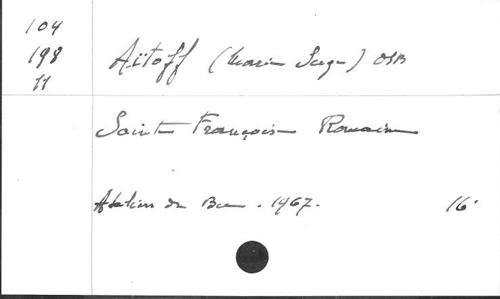 104
198 Aïtoff (Marie Serge) OSB
11
Sainte Françoise Romaine
Ateliers du Bec. 1967. 16°